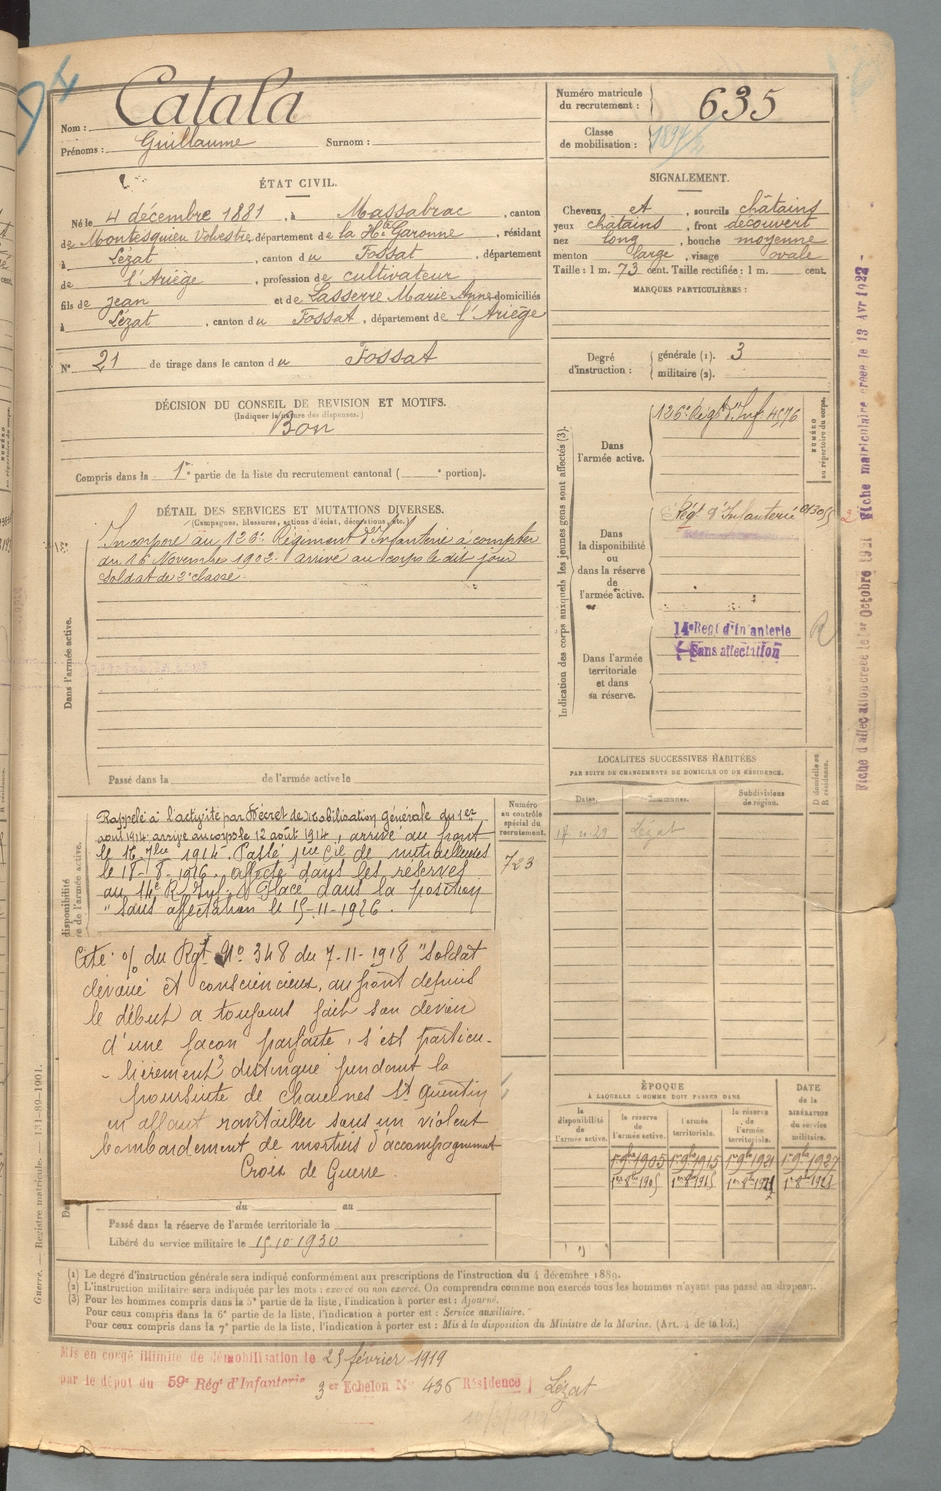 Catala
Nom :
Prénoms : Guillaume Surnom :
Numéro matricule du recrutement : 635
Classe de mobilisation :
ÉTAT CIVIL.
Né le 4 décembre 1881, à Massabrac, canton
de Montesquieu Volvestre, département de la Hte Garonne, résidant
à Lézat, canton du Fossat, département
de l'Ariège, profession de cultivateur
fils de Jean et de Lasserre Marie Anne domiciliés
à Lézat, canton du Fossat, département de l'Ariège
N° 21 de tirage dans le canton du Fossat
SIGNALEMENT.
Cheveux et, sourcils châtains
yeux châtains, front découvert
nez long, bouche moyenne
menton large, visage ovale
Taille : 1 m. 73 cent. Taille rectifiée : 1 m. cent.
MARQUES PARTICULIÈRES :
Degré d'instruction : générale (1). 3
militaire (2).
DÉCISION DU CONSEIL DE REVISION ET MOTIFS.
(Indiquer la nature des dispenses.)
Bon
Compris dans la 1re partie de la liste du recrutement cantonal ( portion).
DÉTAIL DES SERVICES ET MUTATIONS DIVERSES.
(Campagnes, blessures, actions d'éclat, décorations, etc.)
Dans l'armée active.
Incorporé au 126e Régiment d'Infanterie à compter
du 16 Novembre 1902. arrivé au corps le dit jour
Soldat de 2e classe.
Passé dans la de l'armée active le
Indication des corps auxquels les jeunes gens sont affectés (3).
NUMÉRO au répertoire du corps.
Dans l'armée active.
126e Régt d'Inf. 4576
Dans la disponibilité ou dans la réserve de l'armée active.
Régt d'Infanterie
Dans l'armée territoriale et dans sa réserve.
14e Regt d'Infanterie
Sans affectation
Fiche d'affectation créée le 1er Octobre 1921
Fiche matriculaire créée le 13 Avr 1922
Rappelé à l'activité par Décret de Mobilisation générale du 1er
août 1914. arrivé au corps le 12 août 1914, arrivé au front
le 16 7bre 1914. Passé 1ère Cie de mitrailleuses
le 18-8-1916. affecté dans les réserves
au 14e R. Inf. Placé dans la position
"sans affectation le 15-11-1926.
Numéro au contrôle spécial du recrutement.
723
Cité : % du Rgt N° 348 du 7-11-1918 "Soldat
dévoué et consciencieux, au front depuis
le début a toujours fait son devoir
d'une façon parfaite, s'est particu-
- lièrement distingué pendant la
poursuite de Chaulnes St Quentin
en allant ravitailler sous un violent
bombardement de mortiers d'accompagnement
Croix de Guerre
du au
Passé dans la réserve de l'armée territoriale le
Libéré du service militaire le 15 10 1930
LOCALITÉS SUCCESSIVES HABITÉES
PAR SUITE DE CHANGEMENTS DE DOMICILE OU DE RÉSIDENCE.
Dates. Communes. Subdivisions de région. D domicile ou R résidence.
Lézat
ÉPOQUE
À LAQUELLE L'HOMME DOIT PASSER DANS
la disponibilité de l'armée active. la réserve de l'armée active. l'armée territoriale. la réserve de l'armée territoriale.
DATE de la LIBÉRATION du service militaire.
1er 9bre 1905 1er 9bre 1915 1er 9bre 1921 1er 9bre 1927
(1) Le degré d'instruction générale sera indiqué conformément aux prescriptions de l'instruction du 4 décembre 1889.
(2) L'instruction militaire sera indiquée par les mots : exercé ou non exercé. On comprendra comme non exercés tous les hommes n'ayant pas passé au drapeau.
(3) Pour les hommes compris dans la 5e partie de la liste, l'indication à porter est : Ajourné.
Pour ceux compris dans la 6e partie de la liste, l'indication à porter est : Service auxiliaire.
Pour ceux compris dans la 7e partie de la liste, l'indication à porter est : Mis à la disposition du Ministre de la Marine. (Art. 4 de la loi.)
Guerre. — Registre matricule. — 131-89-1901.
Mis en congé illimité de démobilisation le 25 février 1919
par le dépôt du 59e Rég' d'Infanterie 3er Echelon N° 436 Résidence Lézat